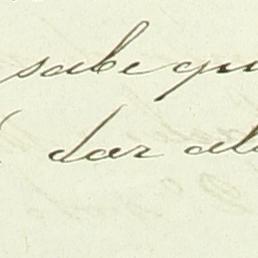 sabe qu
dar al